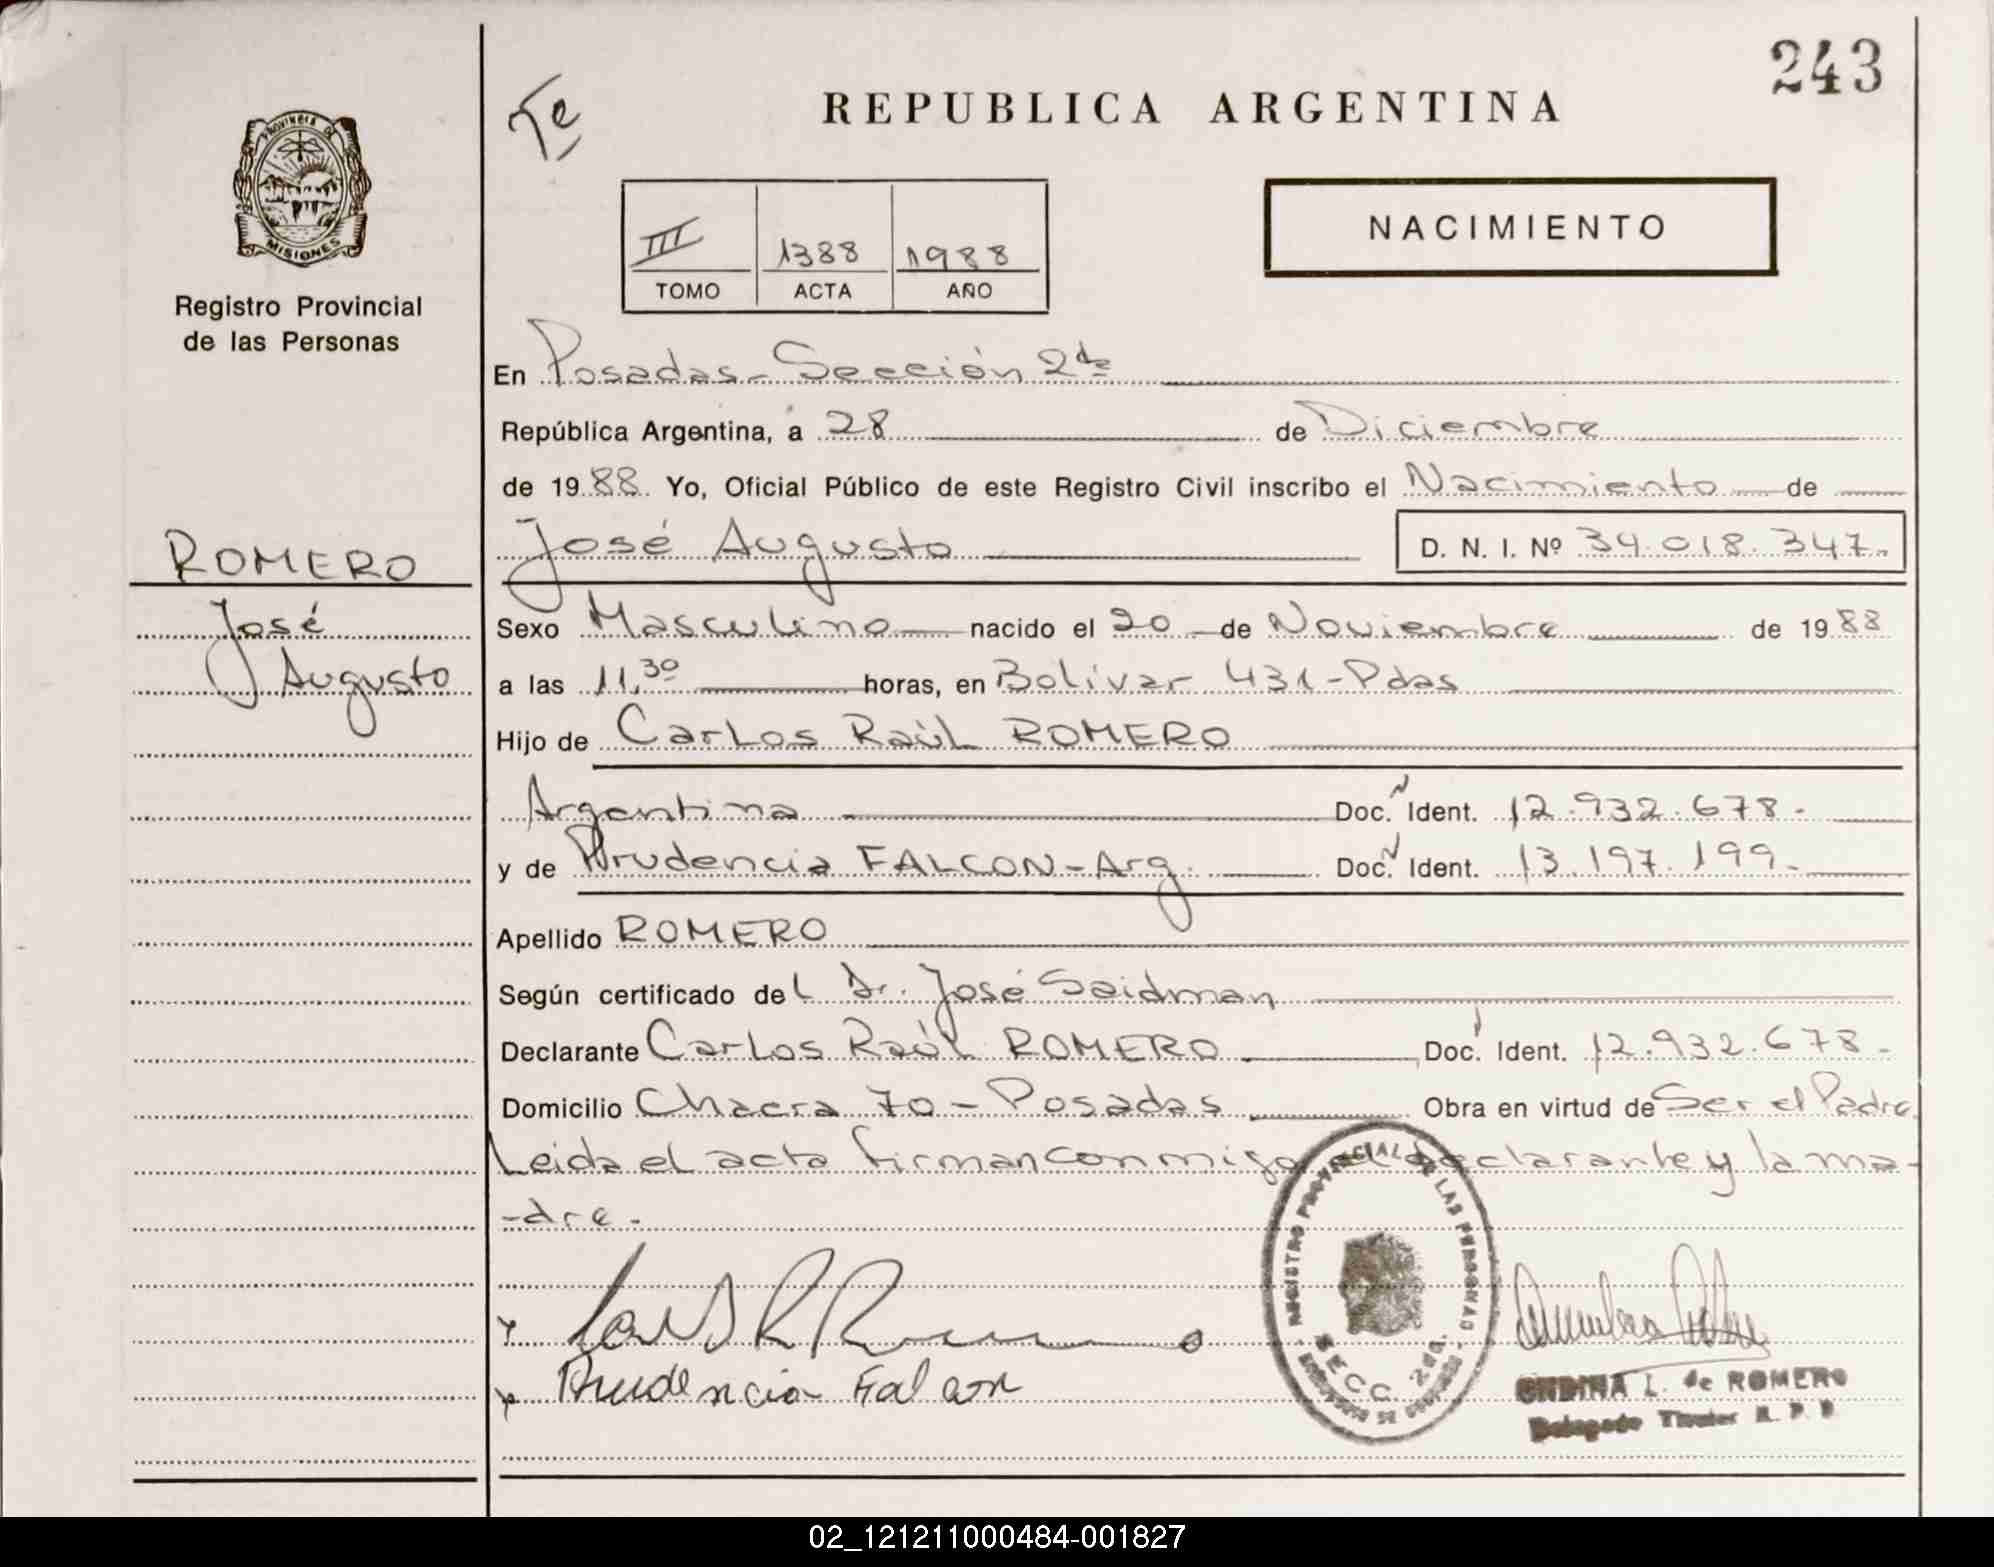 243
Te
REPUBLICA ARGENTINA
PROVINCIA DE
MISIONES
Registro Provincial
de las Personas
III 1388 1988
TOMO ACTA AÑO
NACIMIENTO
En Posadas - Sección 2da
República Argentina, a 28 de Diciembre
de 1988. Yo, Oficial Público de este Registro Civil inscribo el Nacimiento de
José Augusto D. N. I. Nº 34.018.347.-
ROMERO
José
Augusto
Sexo Masculino nacido el 20 de Noviembre de 1988
a las 11,30 horas, en Bolívar 431 - Pdas
Hijo de Carlos Raúl ROMERO
Argentina Doc. Ident. 12.932.678.-
y de Prudencia FALCON - Arg. Doc. Ident. 13.197.199.-
Apellido ROMERO
Según certificado del Dr. José Saidman
Declarante Carlos Raúl ROMERO Doc. Ident. 12.932.678.-
Domicilio Chacra 70 - Posadas Obra en virtud de Ser el Padre.
Leida el acta firman conmigo el declarante y la ma-
-dre.-
REGISTRO PROVINCIAL DE LAS PERSONAS
SECC. 2da.
x Prudencia Falcon
L. de ROMERO
Delegado Titular R. P. P.
02_121211000484-001827